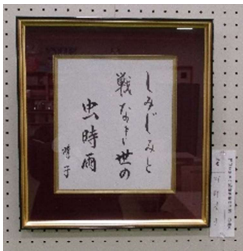 しみじみと
戦なき世の
虫時雨